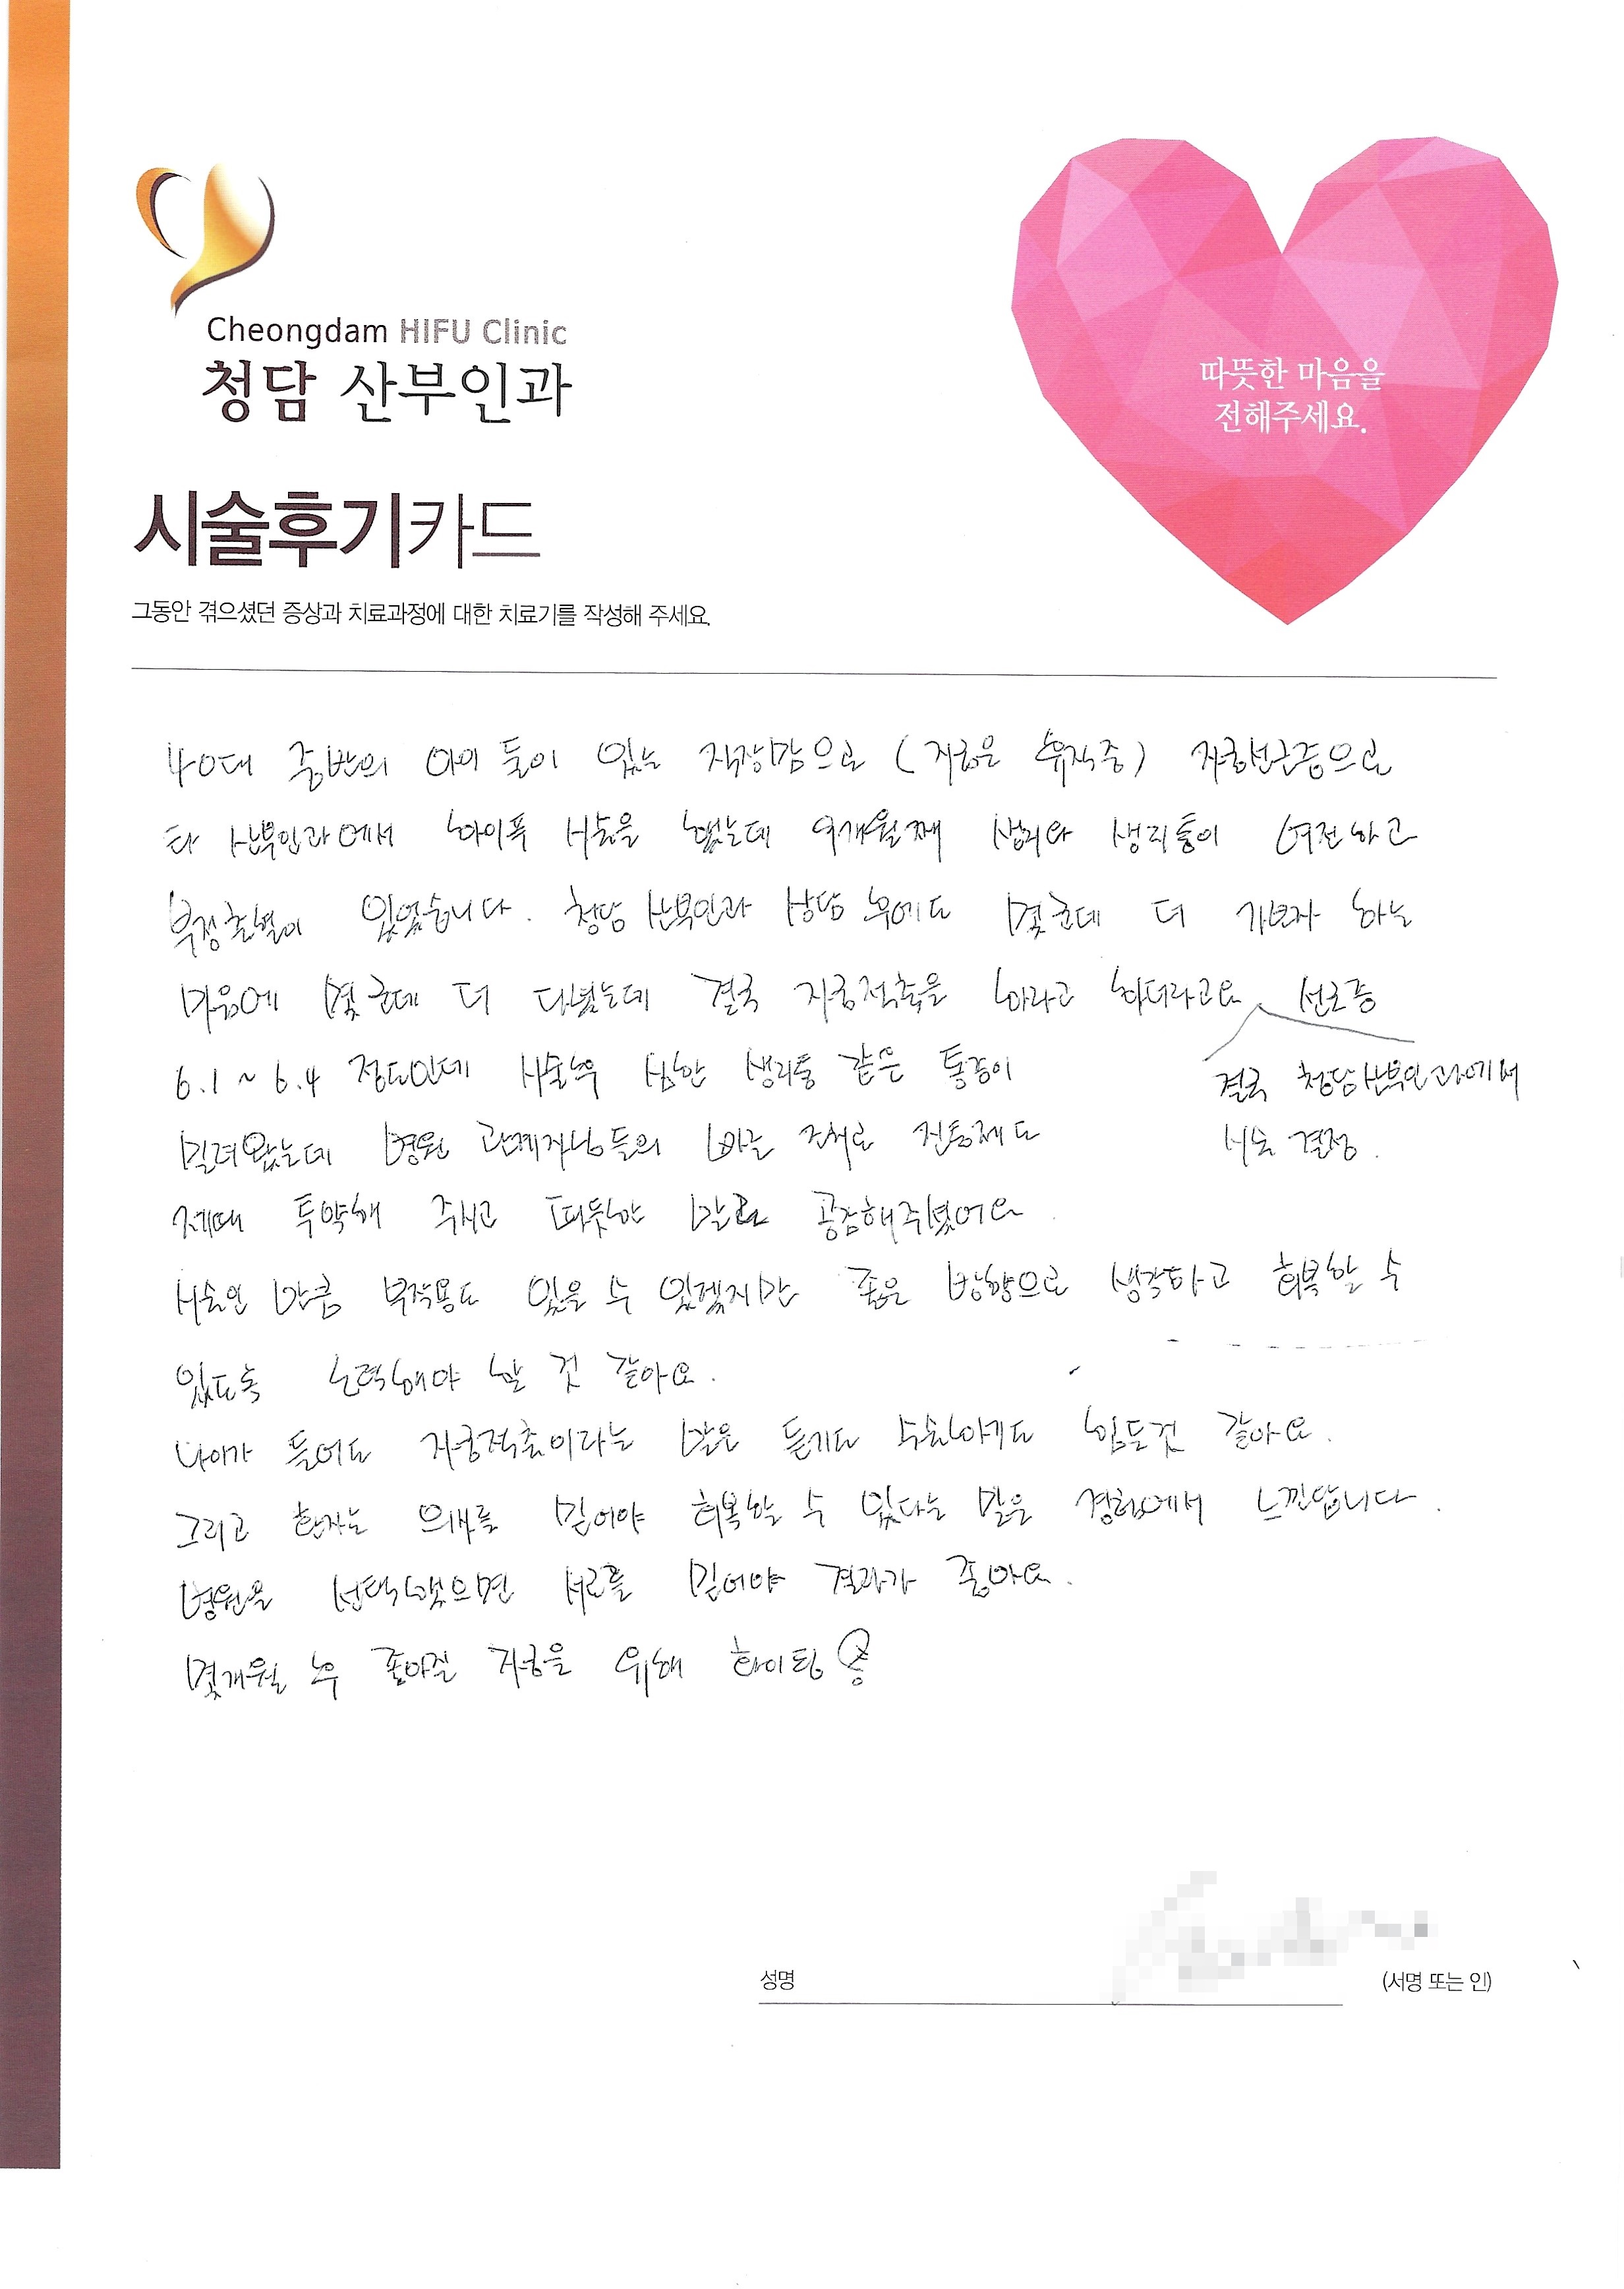 Cheongdam HIFU Clinic
청담 산부인과
따뜻한 마음을
전해주세요.
시술후기카드
그동안 겪으셨던 증상과 치료과정에 대한 치료기를 작성해 주세요.
40대 중반의 아이 둘이 있는 직장맘으로 (지금은 휴직중) 자궁선근증으로
타 산부인과에서 하이푸 시술을 했는데 9개월째 생리와 생리통이 여전하고
부정출혈이 있었습니다. 청담산부인과 상담 후에도 몇군데 더 가보자 하는
마음에 몇군데 더 다녔는데 결국 자궁적출을 하라고 하더라고요 선근증
결국 청담산부인과에서
시술 결정.
6.1 ~ 6.4 정도인데 시술후 심한 생리통 같은 통증이
밀려왔는데 병원 관계자님들의 빠른 조치로 진통제도
제때 투약해 주시고 따뜻한 말로 공감해주셨어요
시술인 만큼 부작용도 있을 수 있겠지만 좋은 방향으로 생각하고 회복할 수
있도록 노력해야 할 것 같아요.
나이가 들어도 자궁적출이라는 말은 듣기도 수술하기도 힘든것 같아요.
그리고 환자는 의사를 믿어야 회복할 수 있다는 말은 경험에서 느낀답니다.
병원을 선택했으면 서로를 믿어야 결과가 좋아요.
몇개월 후 좋아질 자궁을 위해 화이팅
성명
(서명 또는 인)